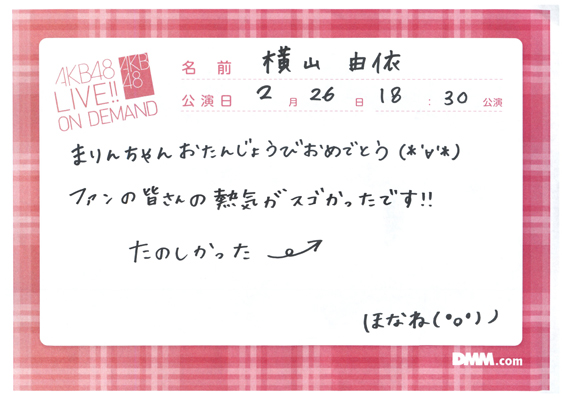 AKB48
LIVE!!
ON DEMAND
AKB
48
名前 横山 由依
公演日 2月26日 18:30公演
まりんちゃんおたんじょうびおめでとう(*'∀'*)
ファンの皆さんの熱気がスゴかったです!!
たのしかった
ほなね(°o°)ノ
DMM.com